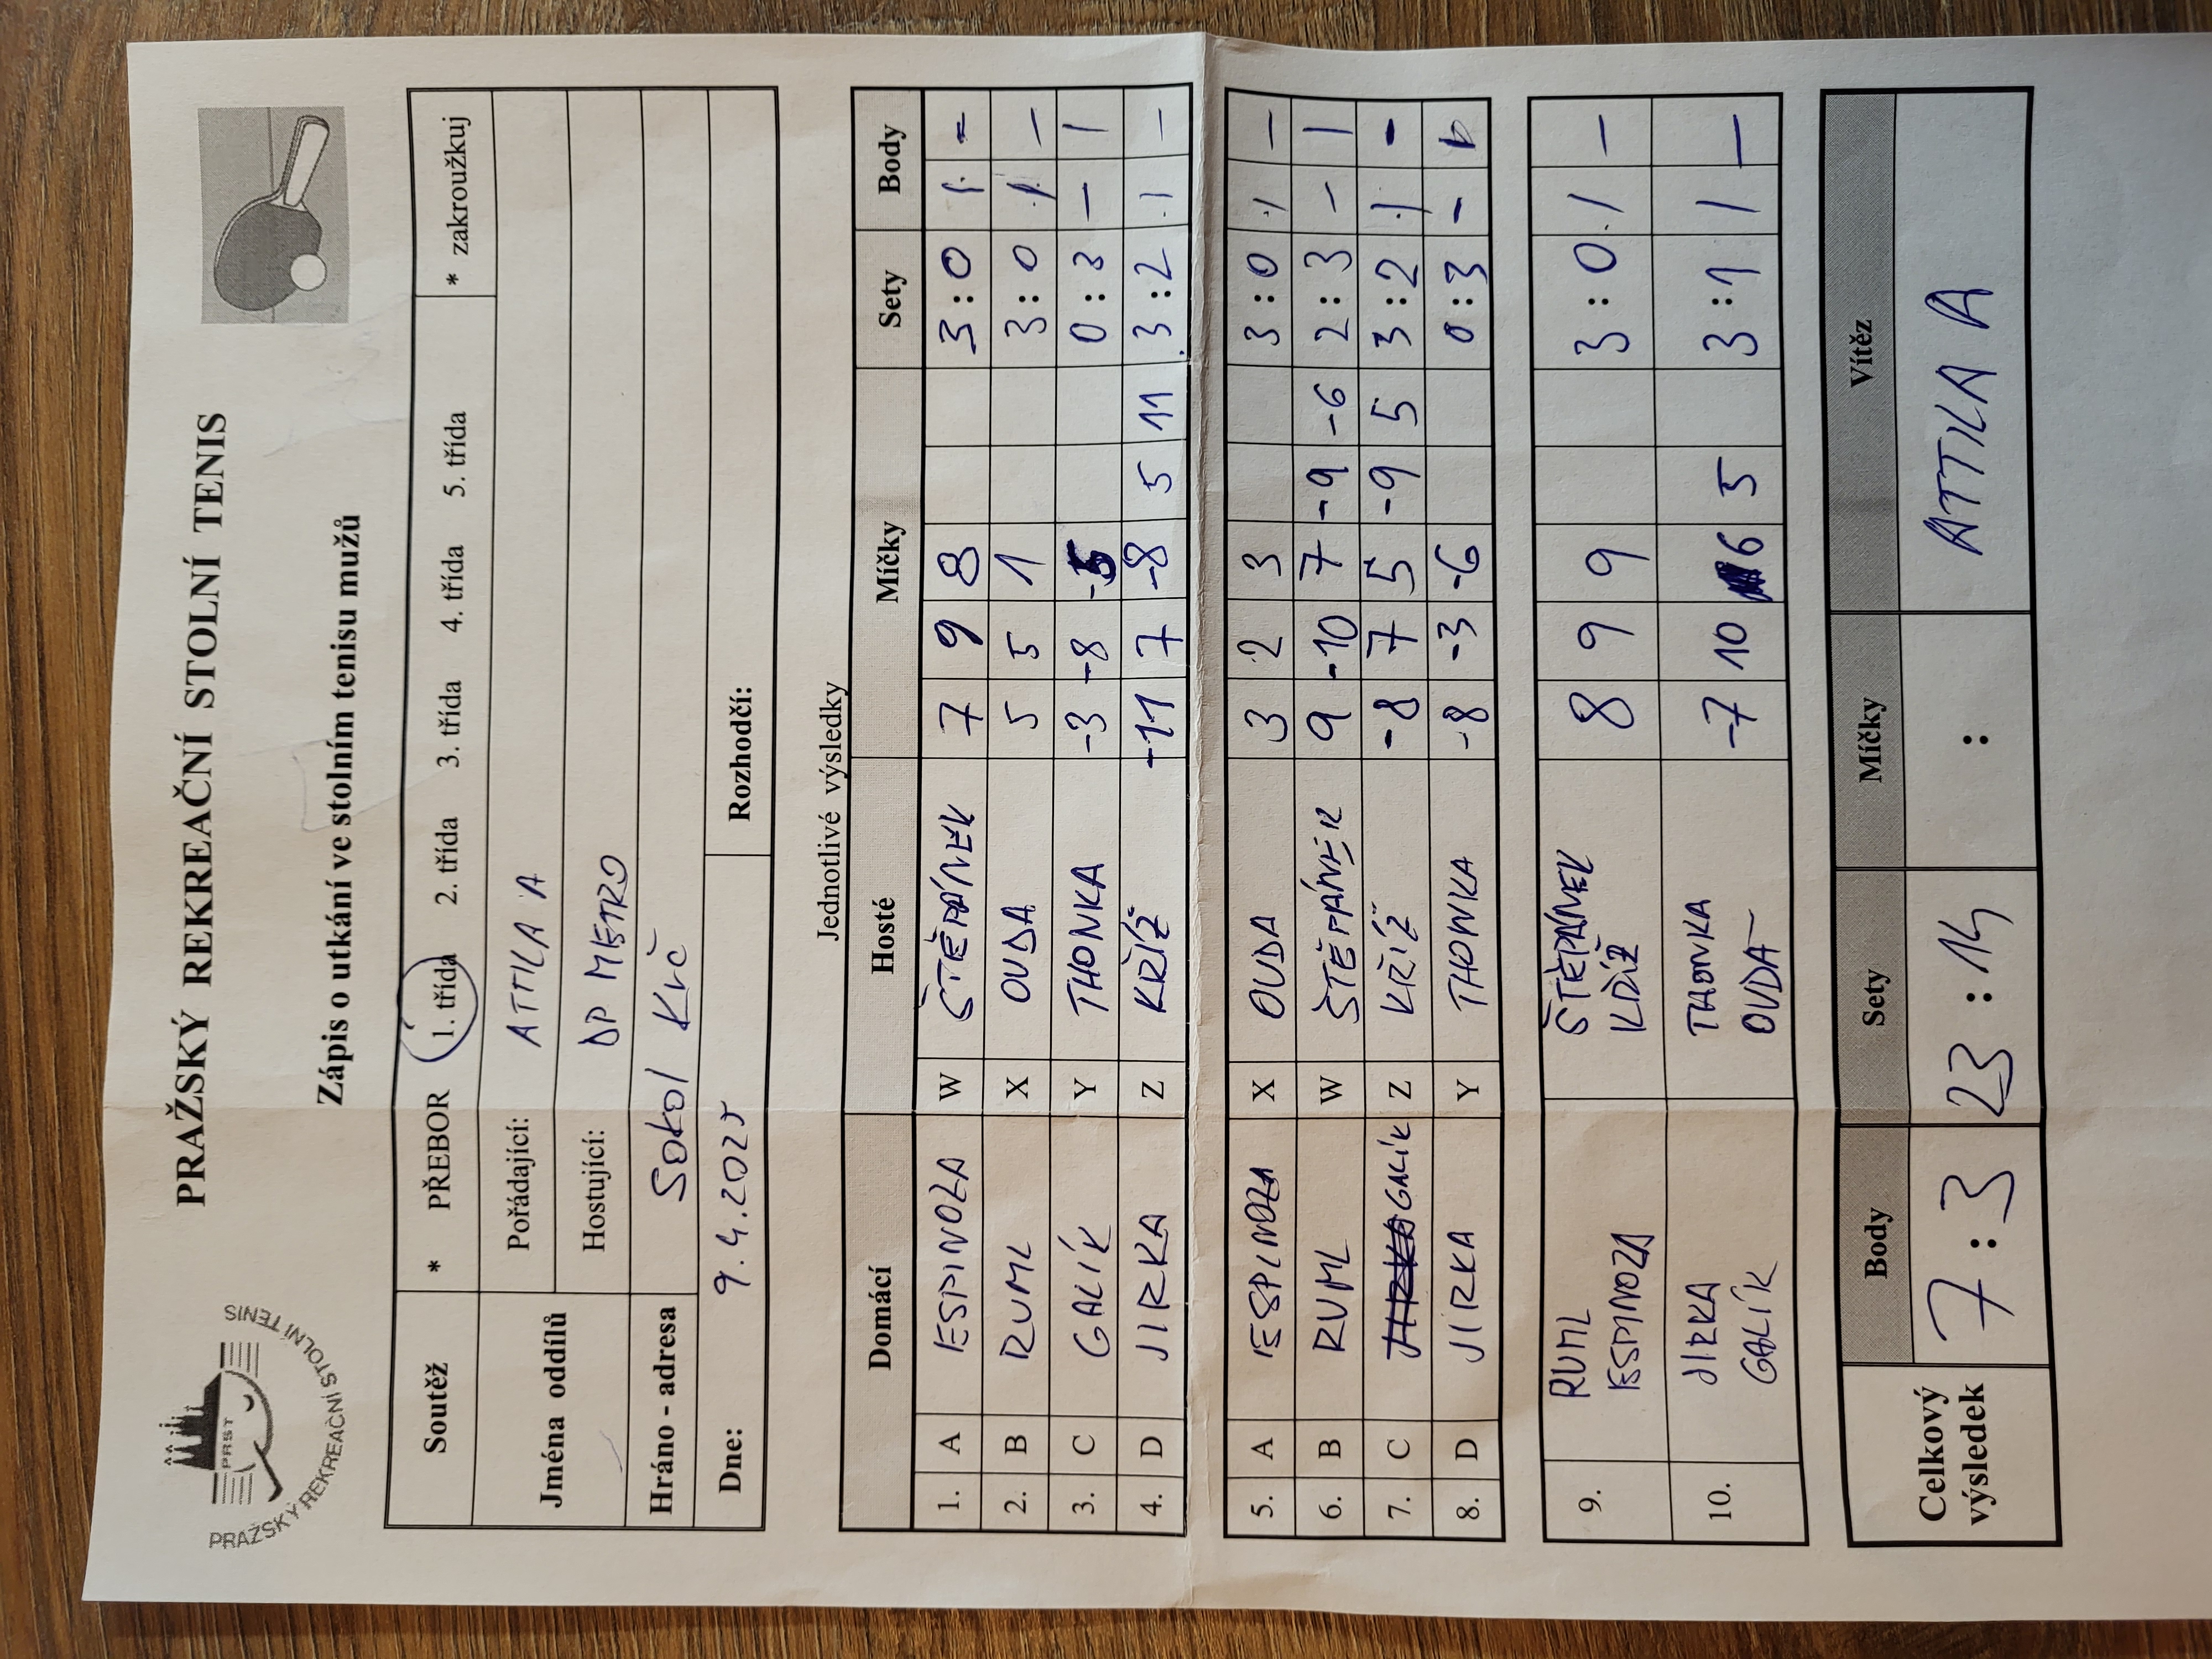 PRAŽSKÝ REKREAČNÍ STOLNÍ TENIS
PRST
PRAŽSKÝ REKREAČNÍ STOLNÍ TENIS
Zápis o utkání ve stolním tenisu mužů
Soutěž * PŘEBOR 1. třída 2. třída 3. třída 4. třída 5. třída * zakroužkuj
Jména oddílů Pořádající: ATTILA A
Hostující: DP METRO
Hráno - adresa Sokol Krč
Dne: 9.4.2025 Rozhodčí:
Jednotlivé výsledky
Domácí Hosté Míčky Sety Body
1. A ESPINOZA W ŠTĚPÁNEK 7 9 8 3:0 1 -
2. B RUML X OUDA 5 5 1 3:0 1 -
3. C GALÍK Y THONKA -3 -8 -5 0:3 - 1
4. D JIRKA Z KŘÍŽ -11 7 -8 5 11 3:2 1 -
5. A ESPINOZA X OUDA 3 2 3 3:0 1 -
6. B RUML W ŠTĚPÁNEK 9 -10 7 -9 -6 2:3 - 1
7. C GALÍK Z KŘÍŽ -8 7 5 -9 5 3:2 1 -
8. D JIRKA Y THONKA -8 -3 -6 0:3 - 1
9. RUML ŠTĚPÁNEK 8 9 9 3:0 1 -
ESPINOZA KŘÍŽ
10. JIRKA THONKA -7 10 6 5 3:1 1 -
GALÍK OUDA
Celkový výsledek Body Sety Míčky Vítěz
7:3 23:14 : ATTILA A